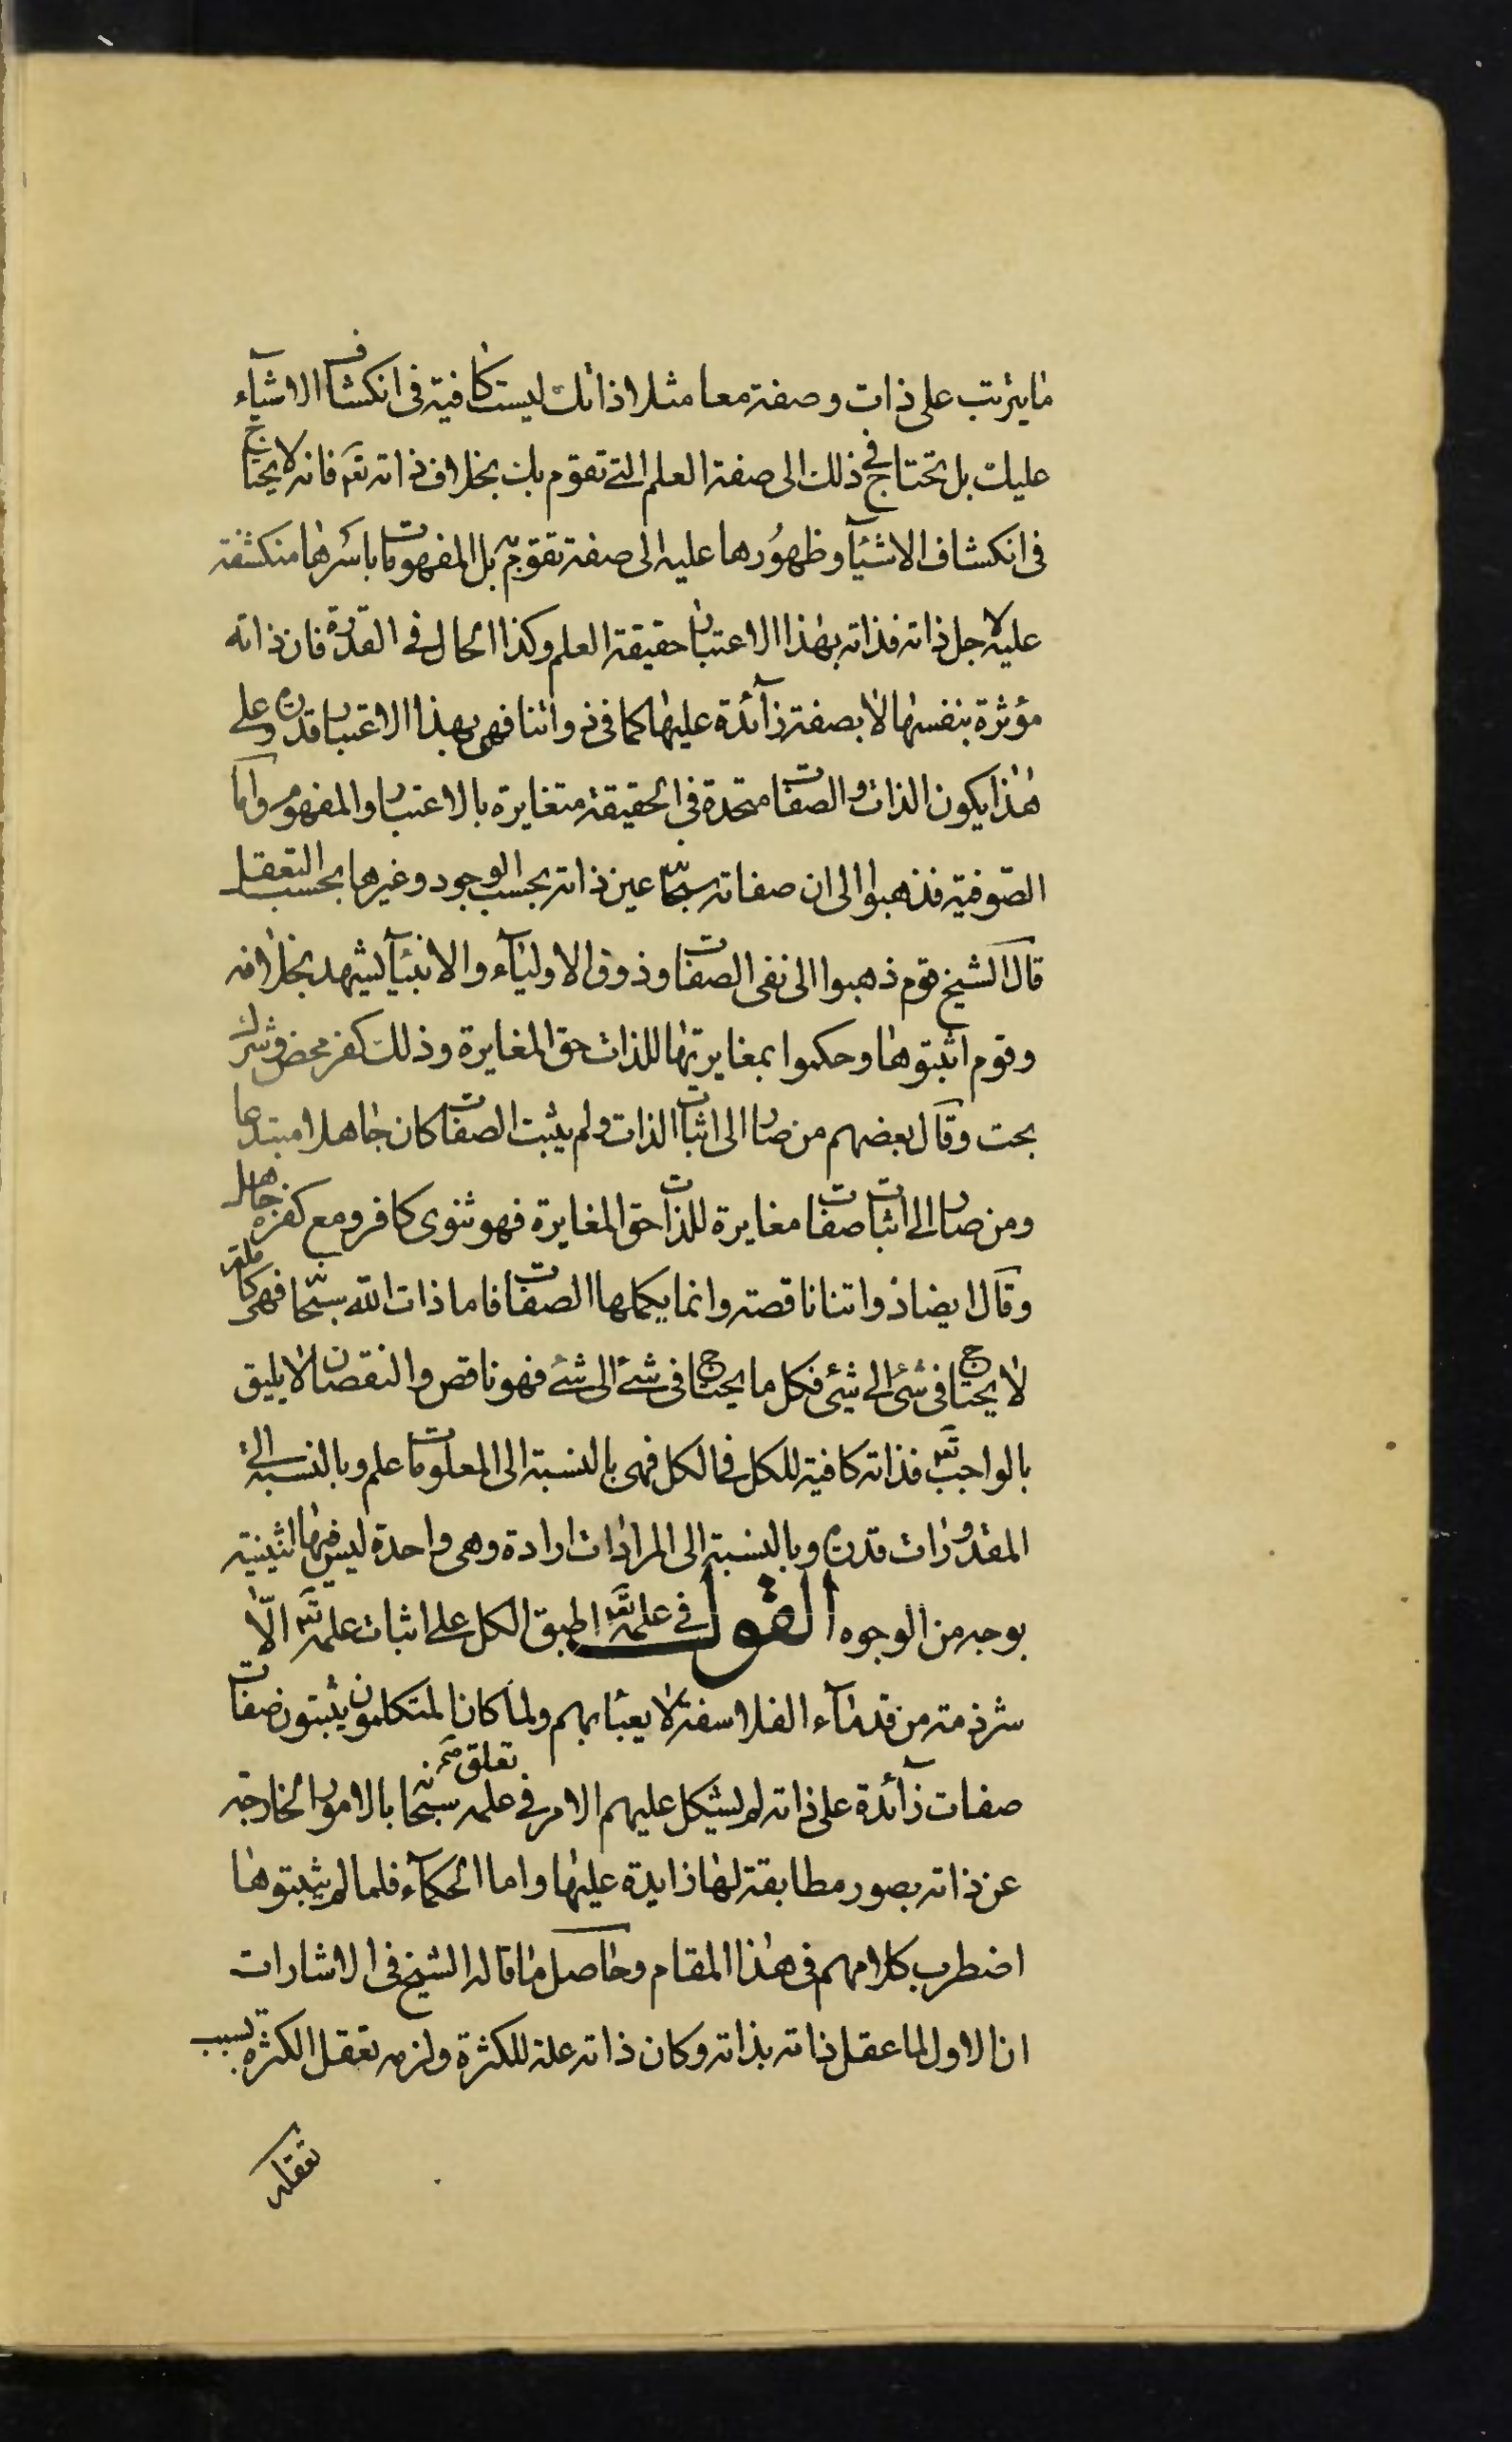 ما يترتب على ذات وصفة معا مثلا ذاتك ليست كافية في انكشاف الاشيآء
عليك بل تحتاج في ذلك الى صفة العلم التي تقوم بك بخلاف ذاته تعم فانه لا يحتاج
في انكشاف الاشيآ وظهورها عليه الى صفة تقوم به بل المفهومات باسرها منكشفة
عليه لاجل ذاته فذاته بهذا الاعتبار حقيقة العلم وكذا الحال في القدرة فان ذاته
مؤثرة بنفسها لا بصفة زآئدة عليها كما في ذواتنا فهي بهذا الاعتبار قدرة وعلى
هذا يكون الذات والصفات متحدة في الحقيقة متغايرة بالاعتبار والمفهوم واما
الصوفية فذهبوا الى ان صفاته سبحانه عين ذاته بحسب الوجود وغيرها بحسب التعقل
قال الشيخ قوم ذهبوا الى نفى الصفات وذوق الاوليآء والانبيآ يشهد بخلافه
وقوم اثبتوها وحكموا بمغايرتها للذات حق المغايرة وذلك كفر محض وشرك
بحت وقال بعضهم من صار الى اثبات الذات ولم يثبت الصفات كان جاهلا مبتدعا
ومن صار الى اثبات صفات مغايرة للذات حق المغايرة فهو ثنوى كافر ومع كفره جاهل
وقال ايضا ذواتنا ناقصة وانما يكملها الصفات فاما ذات الله سبحانه فهى كاملة
لا يحتاج في شئ الى شئ فكل ما يحتاج فى شئ الى شئ فهو ناقص والنقصان لا يليق
بالواجب تعم فذاته كافية للكل في الكل فهى بالنسبة الى المعلومات علم وبالنسبة الى
المقدورات قدرة وبالنسبة الى المرادات ارادة وهى واحدة ليس فيها اثنينية
بوجه من الوجوه القول في علمه تعم اطبق الكل على اثبات علمه تعم الا
شرذمة من قدمآء الفلاسفة لا يعبأ بهم ولما كان المتكلمون يثبتون صفات
صفات زآئدة على ذاته لم يشكل عليهم الامر في تعلق علمه سبحانه بالامور الخارجة
عن ذاته بصور مطابقة لها زايدة عليها واما الحكمآء فلما لم يثبتوها
اضطرب كلامهم في هذا المقام وحاصل ما قاله الشيخ في الاشارات
ان الاول لما عقل ذاته بذاته وكان ذاته علة للكثرة ولزمه تعقل الكثرة بسبب
تعقله